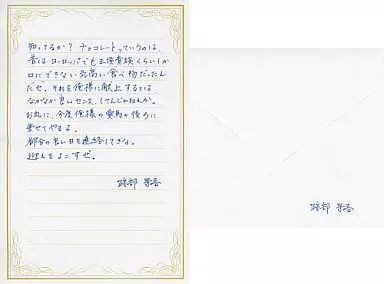 知ってるか？チョコレートっていうのは、
昔はヨーロッパでも王侯貴族くらいしか
口にできない気高い食べ物だったん
だぜ。それを俺様に献上するとは、
なかなか良いセンスしてんじゃねぇか。
お礼に、今度俺様の愛馬の後ろに
乗せてやるよ。
都合の良い日を連絡してきな。
迎えをよこすぜ。
跡部 景吾
跡部 景吾